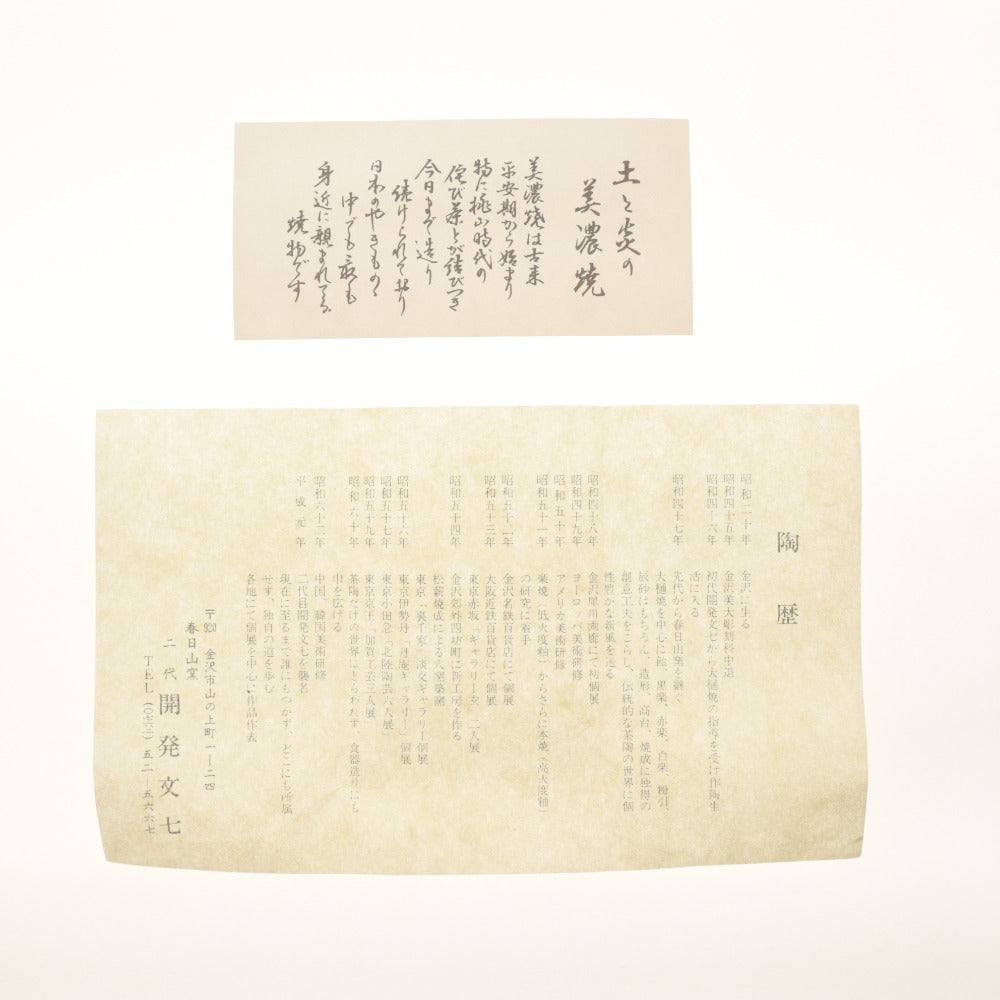 土と炎の
美濃焼
美濃焼は古来
平安期から始まり
特に桃山時代の
侘び茶とが結びつき
今日まで造り
続けられて居り
日本のやきものゝ
中でも最も
身近に親まれてる
焼物です
陶歴
昭和二十年 金沢に生る
昭和四十五年 金沢美大彫刻科中退
昭和四十六年 初代開発文七から大樋焼の指導を受け作陶生
活に入る
昭和四十七年 先代から春日山窯を継ぐ
大樋焼を中心に飴、黒楽、赤楽、白楽、粉引、
辰砂はもちろん、造形、高台、焼成に独得の
創意工夫をこらし、伝統的な茶陶の世界に個
性豊かな新風を送る
昭和四十八年 金沢犀川画廊にて初個展
昭和四十九年 ヨーロッパ美術研修
昭和五十年 アメリカ美術研修
昭和五十一年 楽焼(低火度釉)からさらに本焼(高火度釉)
の研究に着手
昭和五十二年 金沢名鉄百貨店にて個展
昭和五十三年 大阪近鉄百貨店にて個展
東京赤坂「ギャラリー玄」二人展
昭和五十四年 金沢郊外四坊町に新工房を作る
松薪焼成による穴窯築窯
東京「裏千家」淡交ギャラリー個展
昭和五十六年 東京伊勢丹「丹庵ギャラリー」個展
昭和五十七年 東京小田急「北陸陶芸六人展」
昭和五十九年 東京京王「加賀工芸三人展」
昭和六十年 茶陶だけの世界にとらわれず、食器造りにも
巾を広げる
昭和六十二年 中国、韓国美術研修
平成元年 二代目開発文七を襲名
現在に至るまで誰にもつかず、どこにも所属
せず、独自の道を歩む
各地にて個展を中心に作品作表
〒920 金沢市山の上町一ー二四
春日山窯
二代 開発文七
TEL(〇七六二)五二ー五六六七